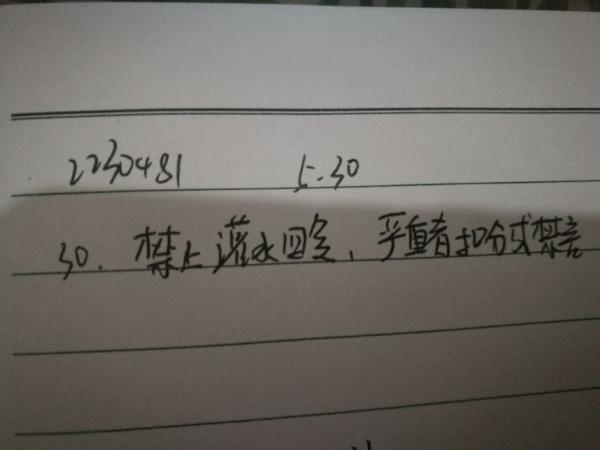 2230481 5.30
30. 禁止灌水回复、严重者扣分或禁言